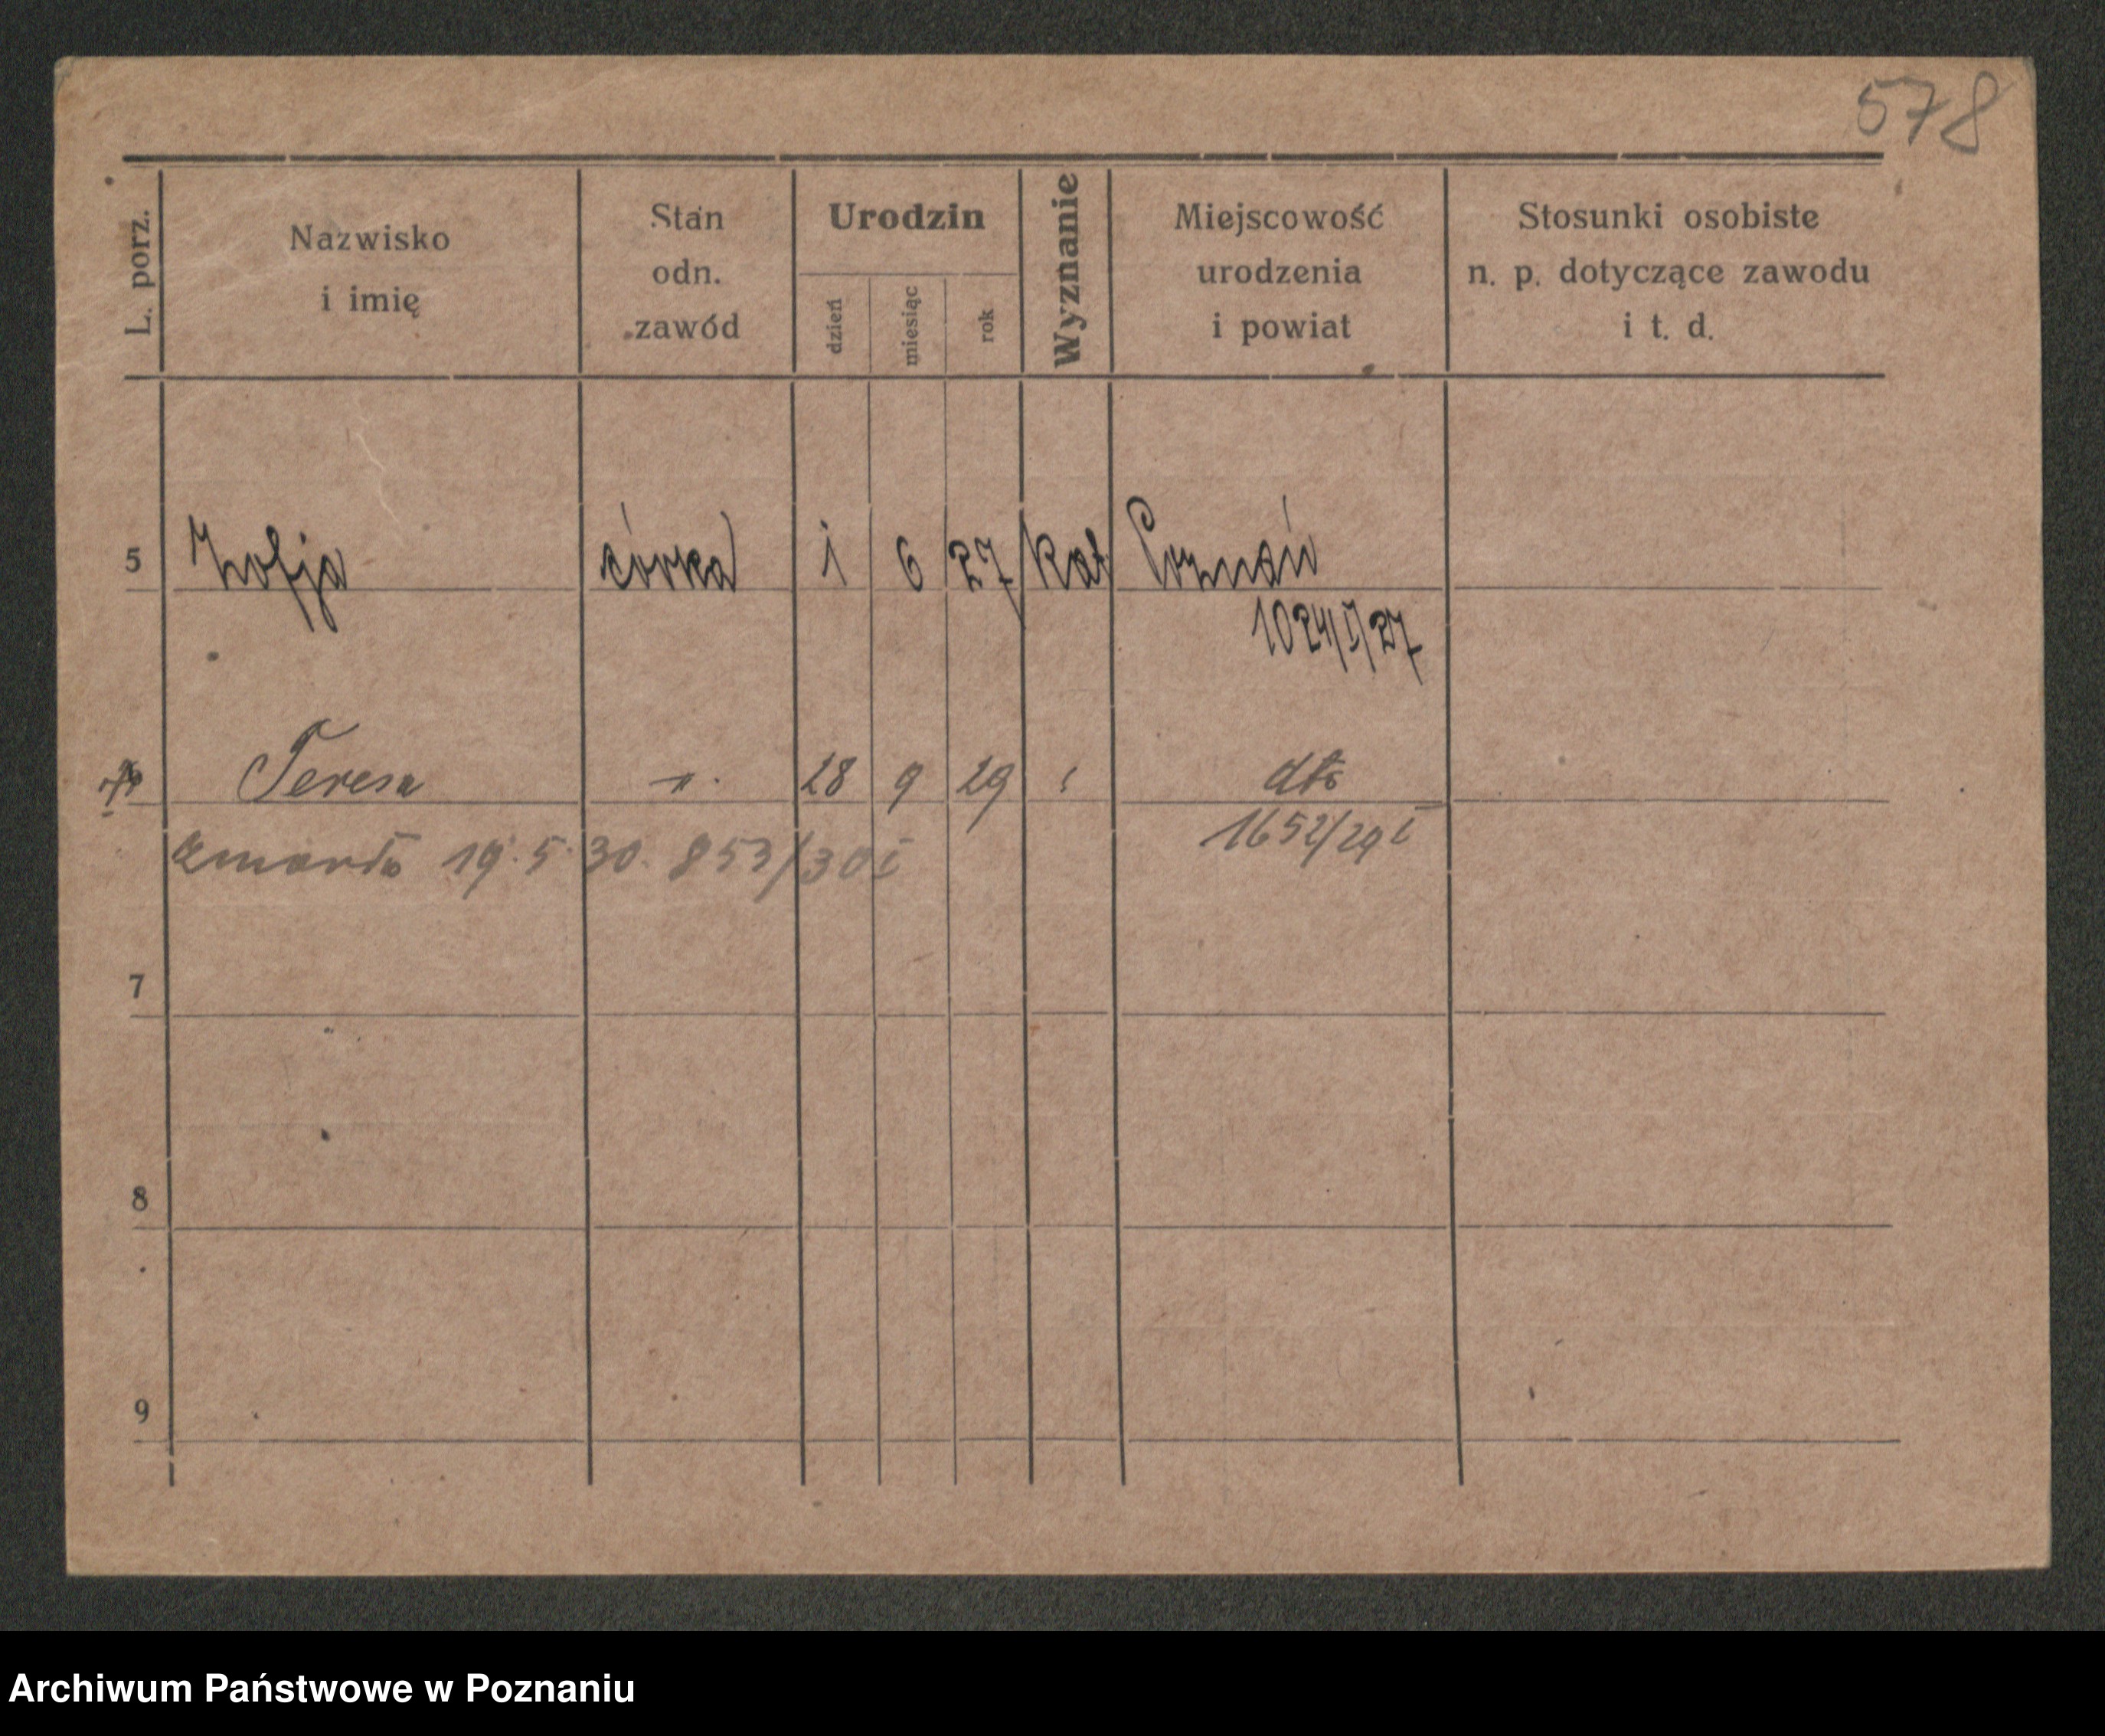 578
L. porz.
Nazwisko
i imię
Stan
odn.
zawód
Urodzin
dzień
miesiąc
rok
Wyznanie
Miejscowość
urodzenia
i powiat
Stosunki osobiste
n. p. dotyczące zawodu
i t. d.
5 Zofja córka 1 6 27 kat Poznań
1024/I/27
Teresa -"- 28 9 29 " dto
1652/29 I
zmarła 19.5.30. 853/30 I
7
8
9
Archiwum Państwowe w Poznaniu